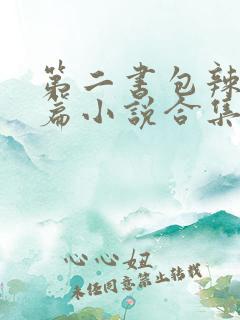 第二书包辣
篇小说合集
心心妞
未经同意禁止转载